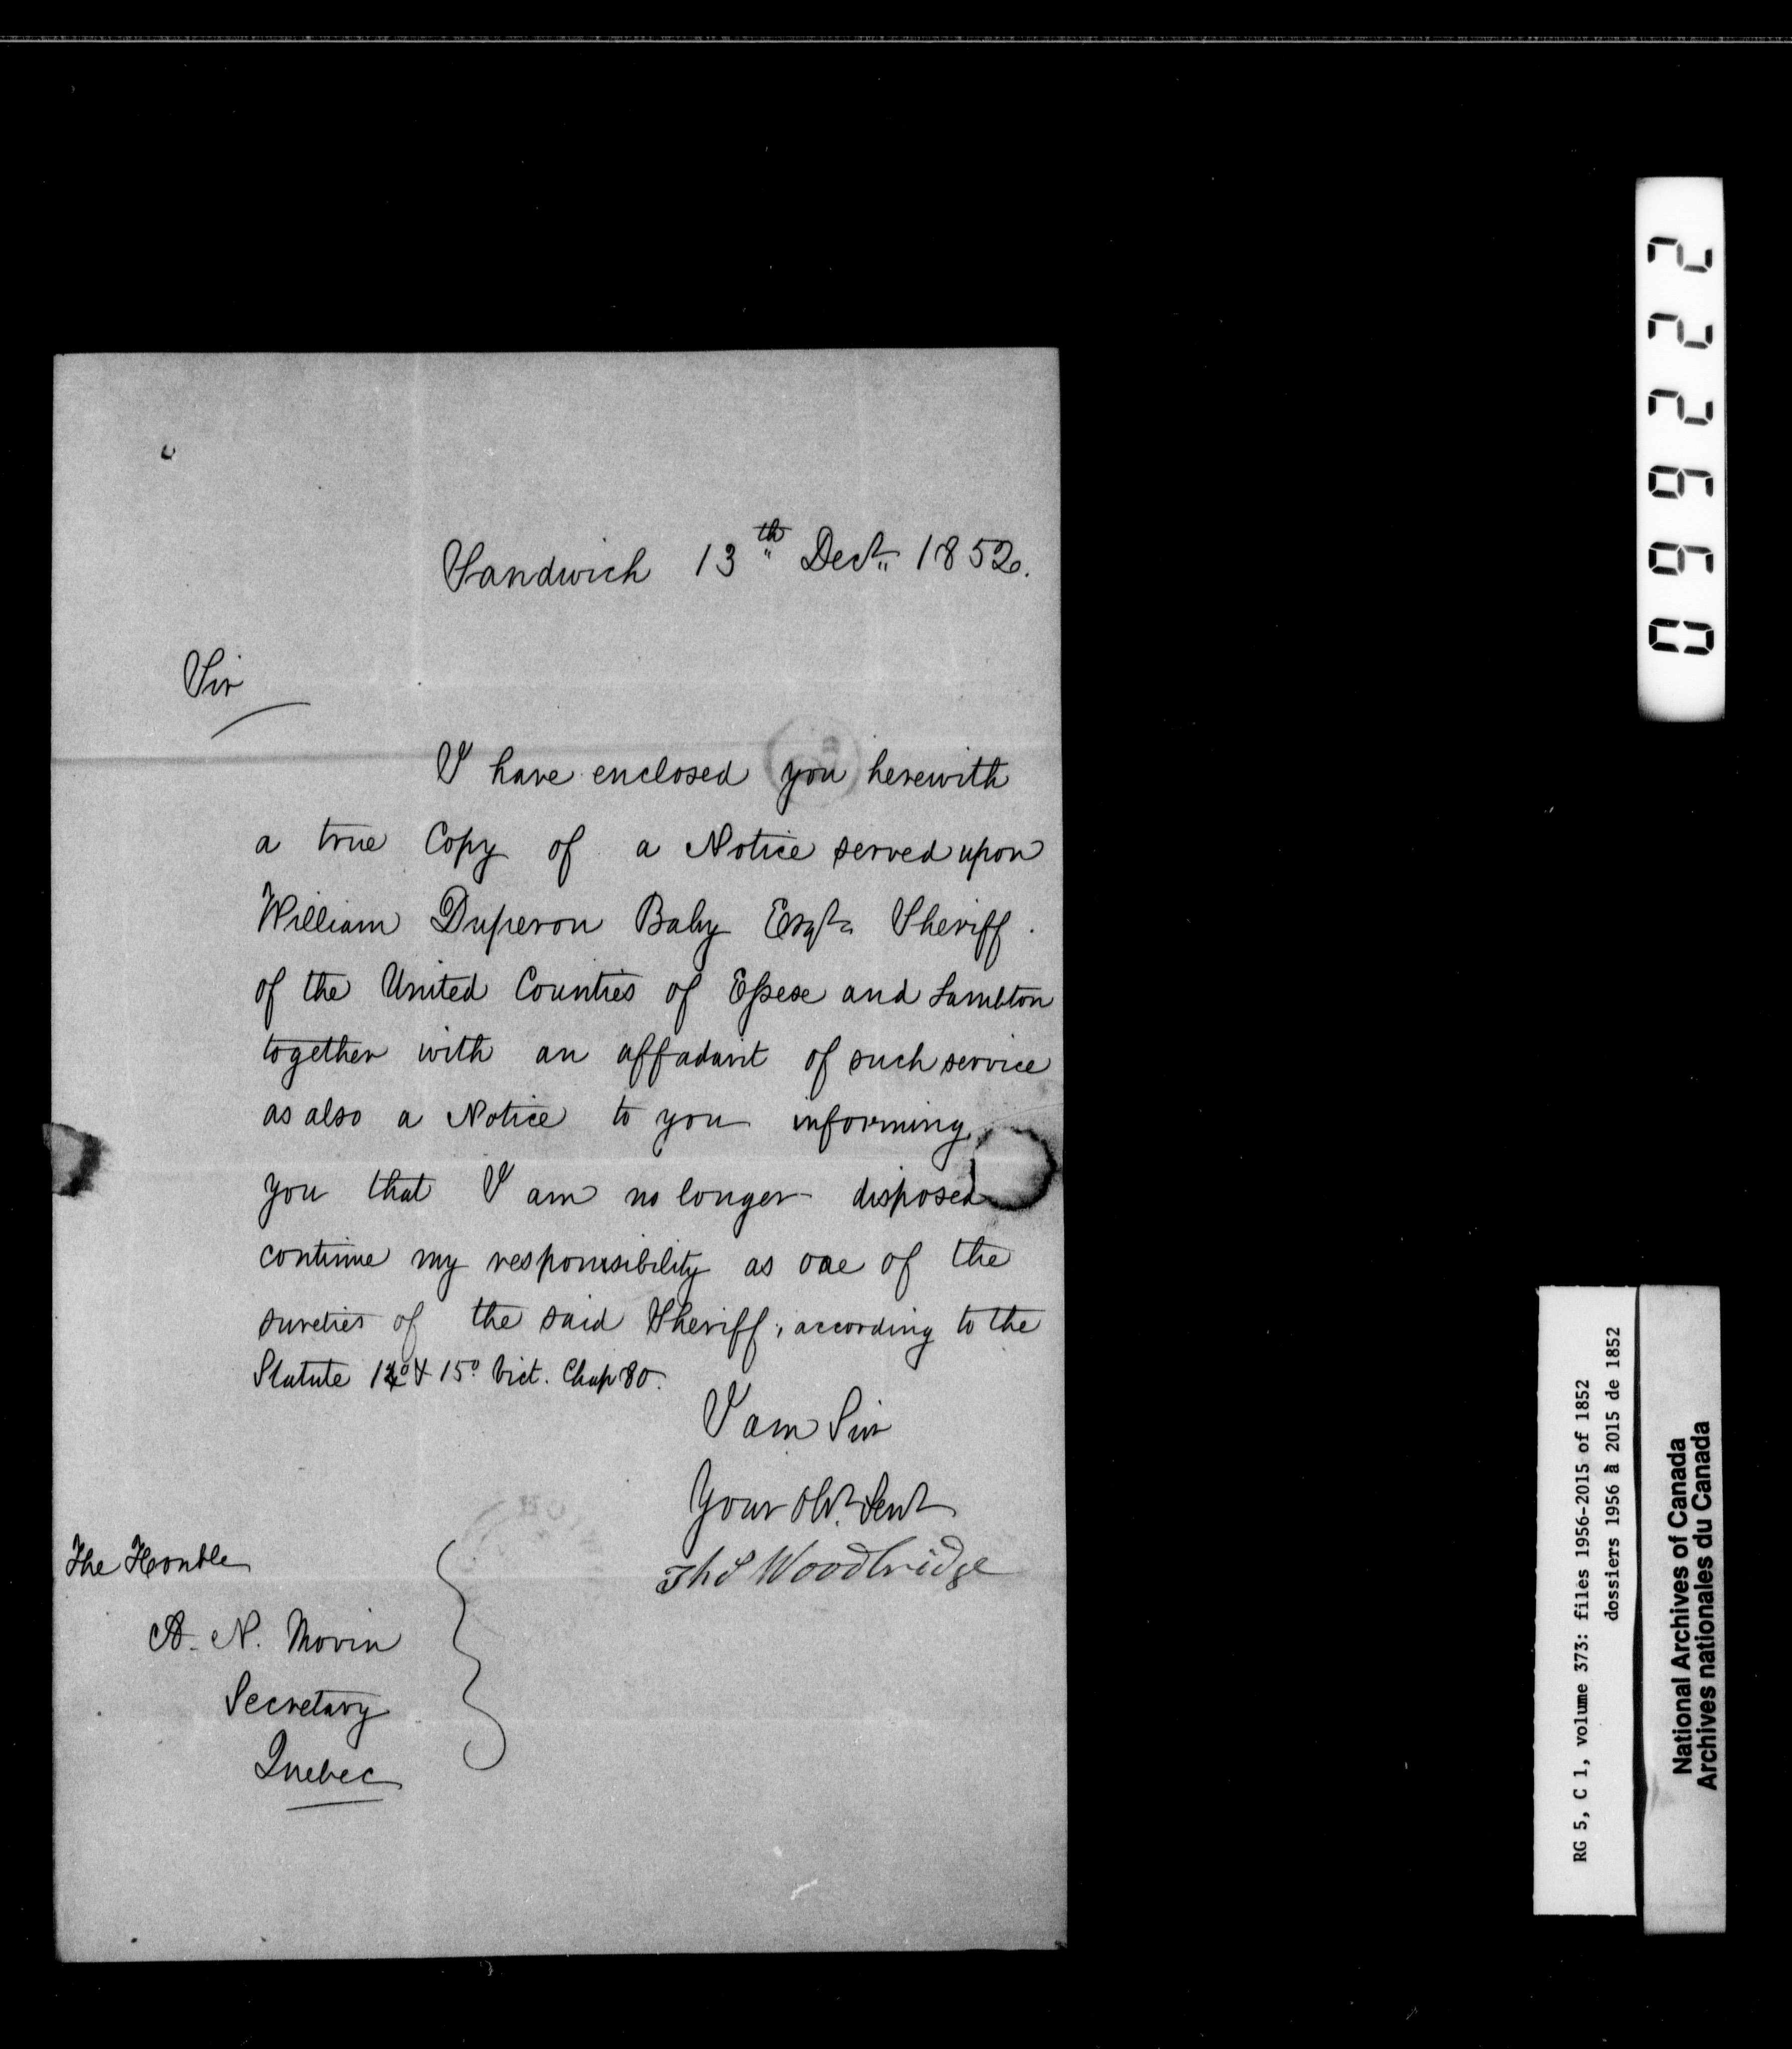 Sandwich 13th Decr 1852.
Sir
I have enclosed you herewith
a true Copy of a Notice served upon
William Duperon Baby Esqr Sheriff
of the United Counties of Essex and Lambton
together with an affadavit of such service
as also a Notice to you informing
you that I am no longer disposed
continue my responsibility as one of the
sureties of the said Sheriff, according to the
Statute 14º & 15º Vict. Chap 80.
I am Sir
Your Obt. Servt
ThS Woodbridge
The Honble
A. N. Morin
Secretary
Quebec
099222
RG 5, C 1, volume 373: files 1956-2015 of 1852
dossiers 1956 à 2015 de 1852
National Archives of Canada
Archives nationales du Canada